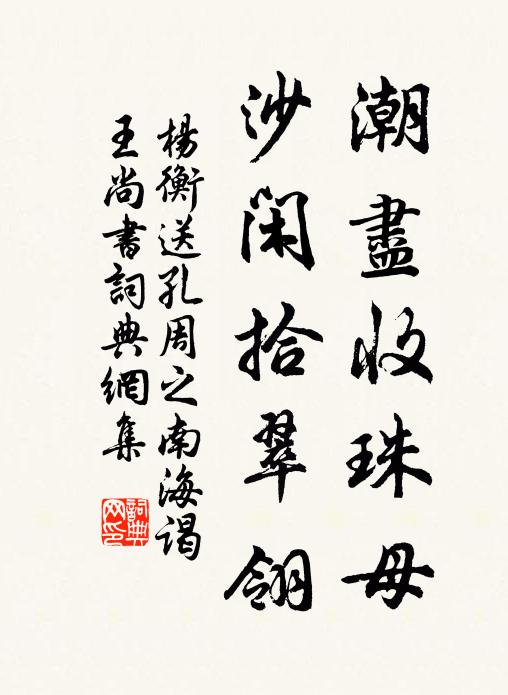 潮盡收珠母
沙閑拾翠翎
楊衡送孔周之南海謁
王尚書詞典網集
詞典
网印